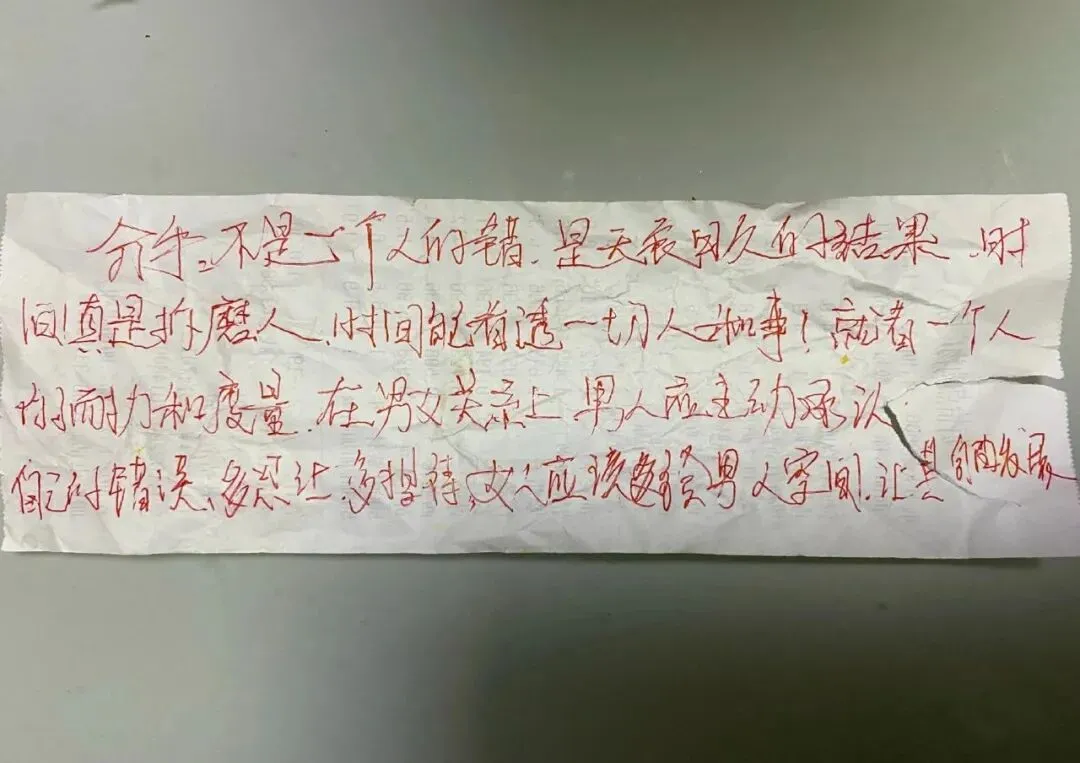 分手。不是一个人的错．是天长日久的结果．时
间真是折磨人，时间能看透一切人和事！就看一个人
的耐力和度量．在男女关系上男人应主动承认
自己的错误，多忍让，多担待，女人应该多给男人空间．让其自由发展